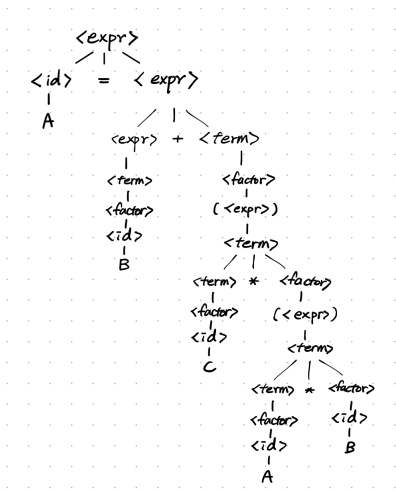 <expr>
<id> = <expr>
A
<expr> + <term>
<term> <factor>
<factor> (<expr>)
<id> <term>
B
<term> * <factor>
<factor> (<expr>)
<id> <term>
C
<term> * <factor>
<factor> <id>
<id> B
A